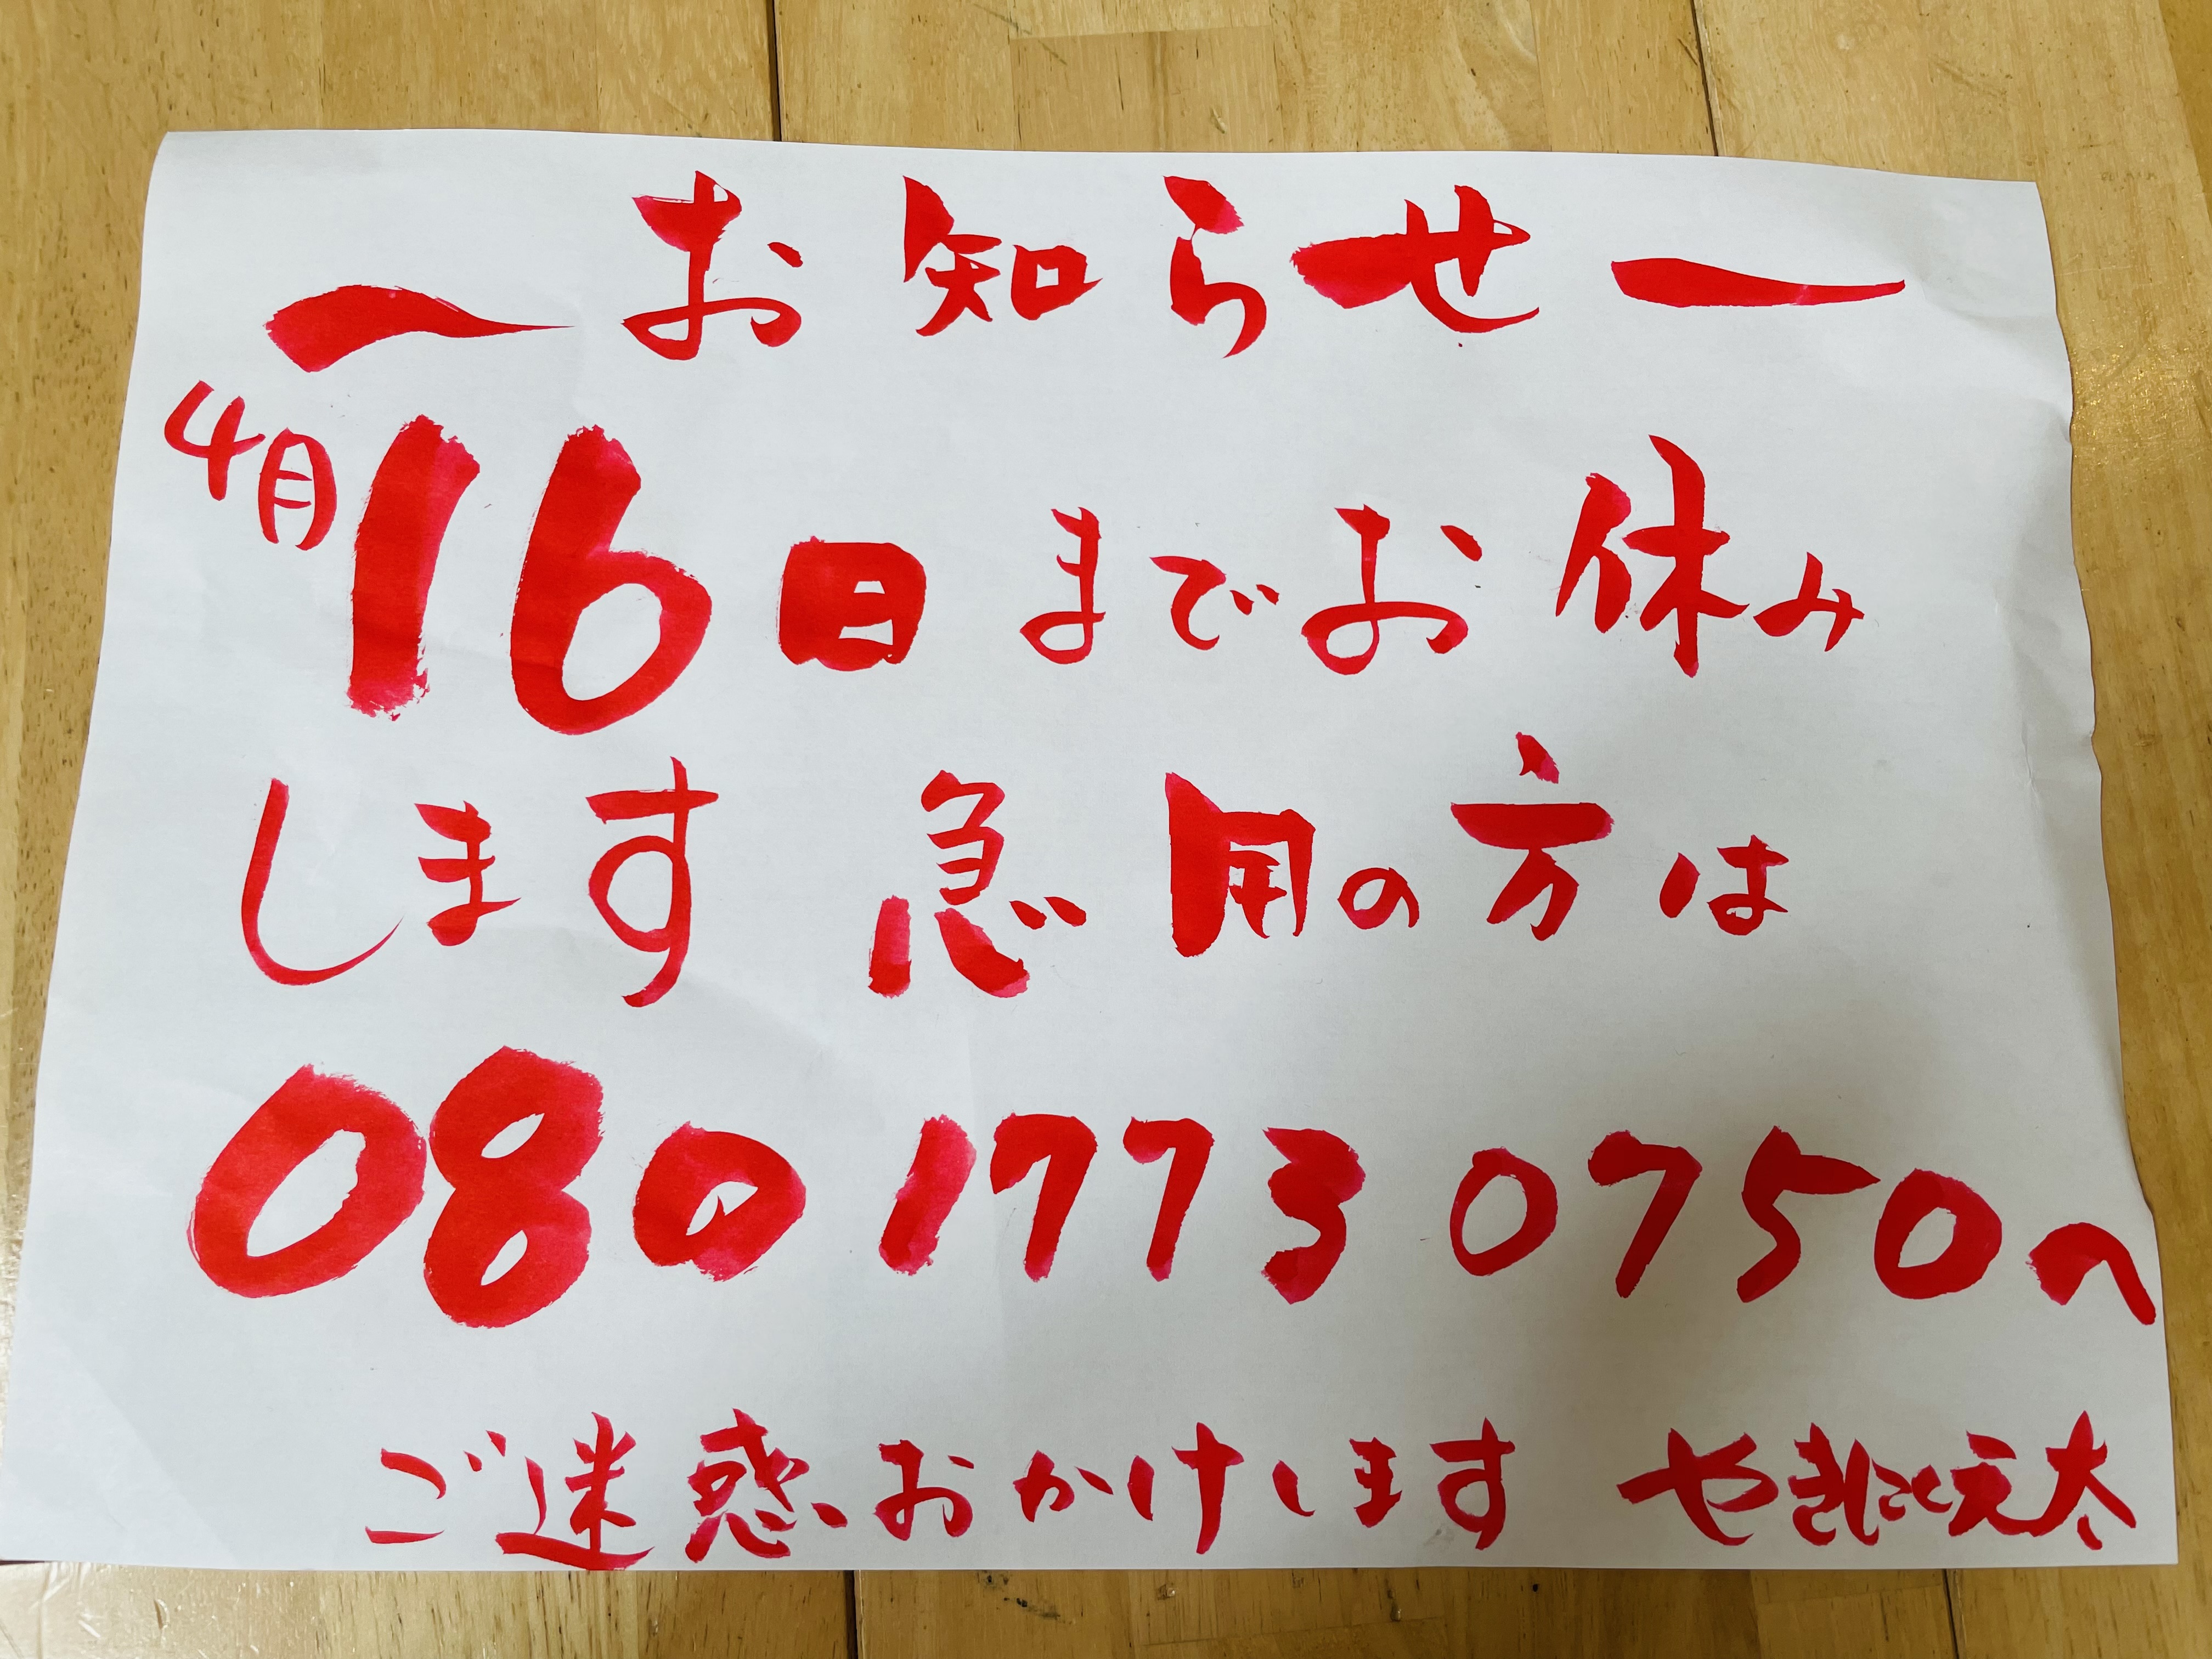 ーお知らせー
4月16日までお休み
します 急用の方は
080 1773 0750へ
ご迷惑おかけします やきにく元太